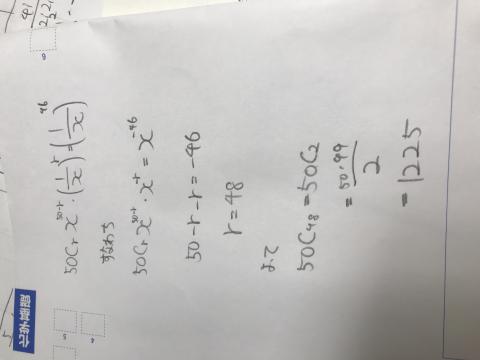 50Cr x^50-r・(1/x)^r = (1/x)^46
すなわち
50Cr x^50-r・x^-r = x^-46
50-r-r=-46
r=48
よって
50C48 = 50C2
= 50・49/2
= 1225